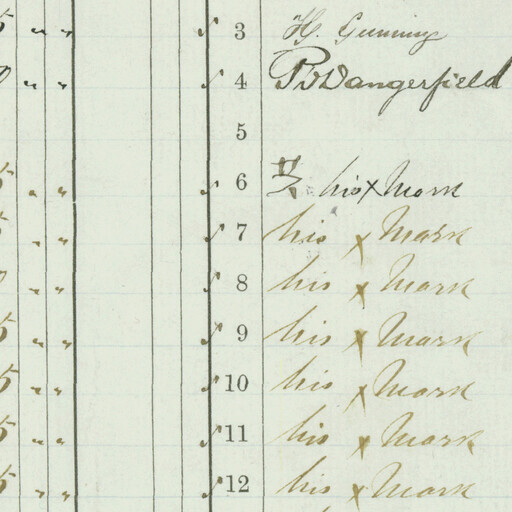 5 " " ✓ 3 H. Gunning
0 " " ✓ 4 Dangerfield
5
5 " " ✓ 6 his x Mark
5 " " ✓ 7 his x Mark
0 " " ✓ 8 his x Mark
5 " " ✓ 9 his x Mark
5 " " ✓ 10 his x Mark
5 " " ✓ 11 his x Mark
5 " " ✓ 12 his x Mark